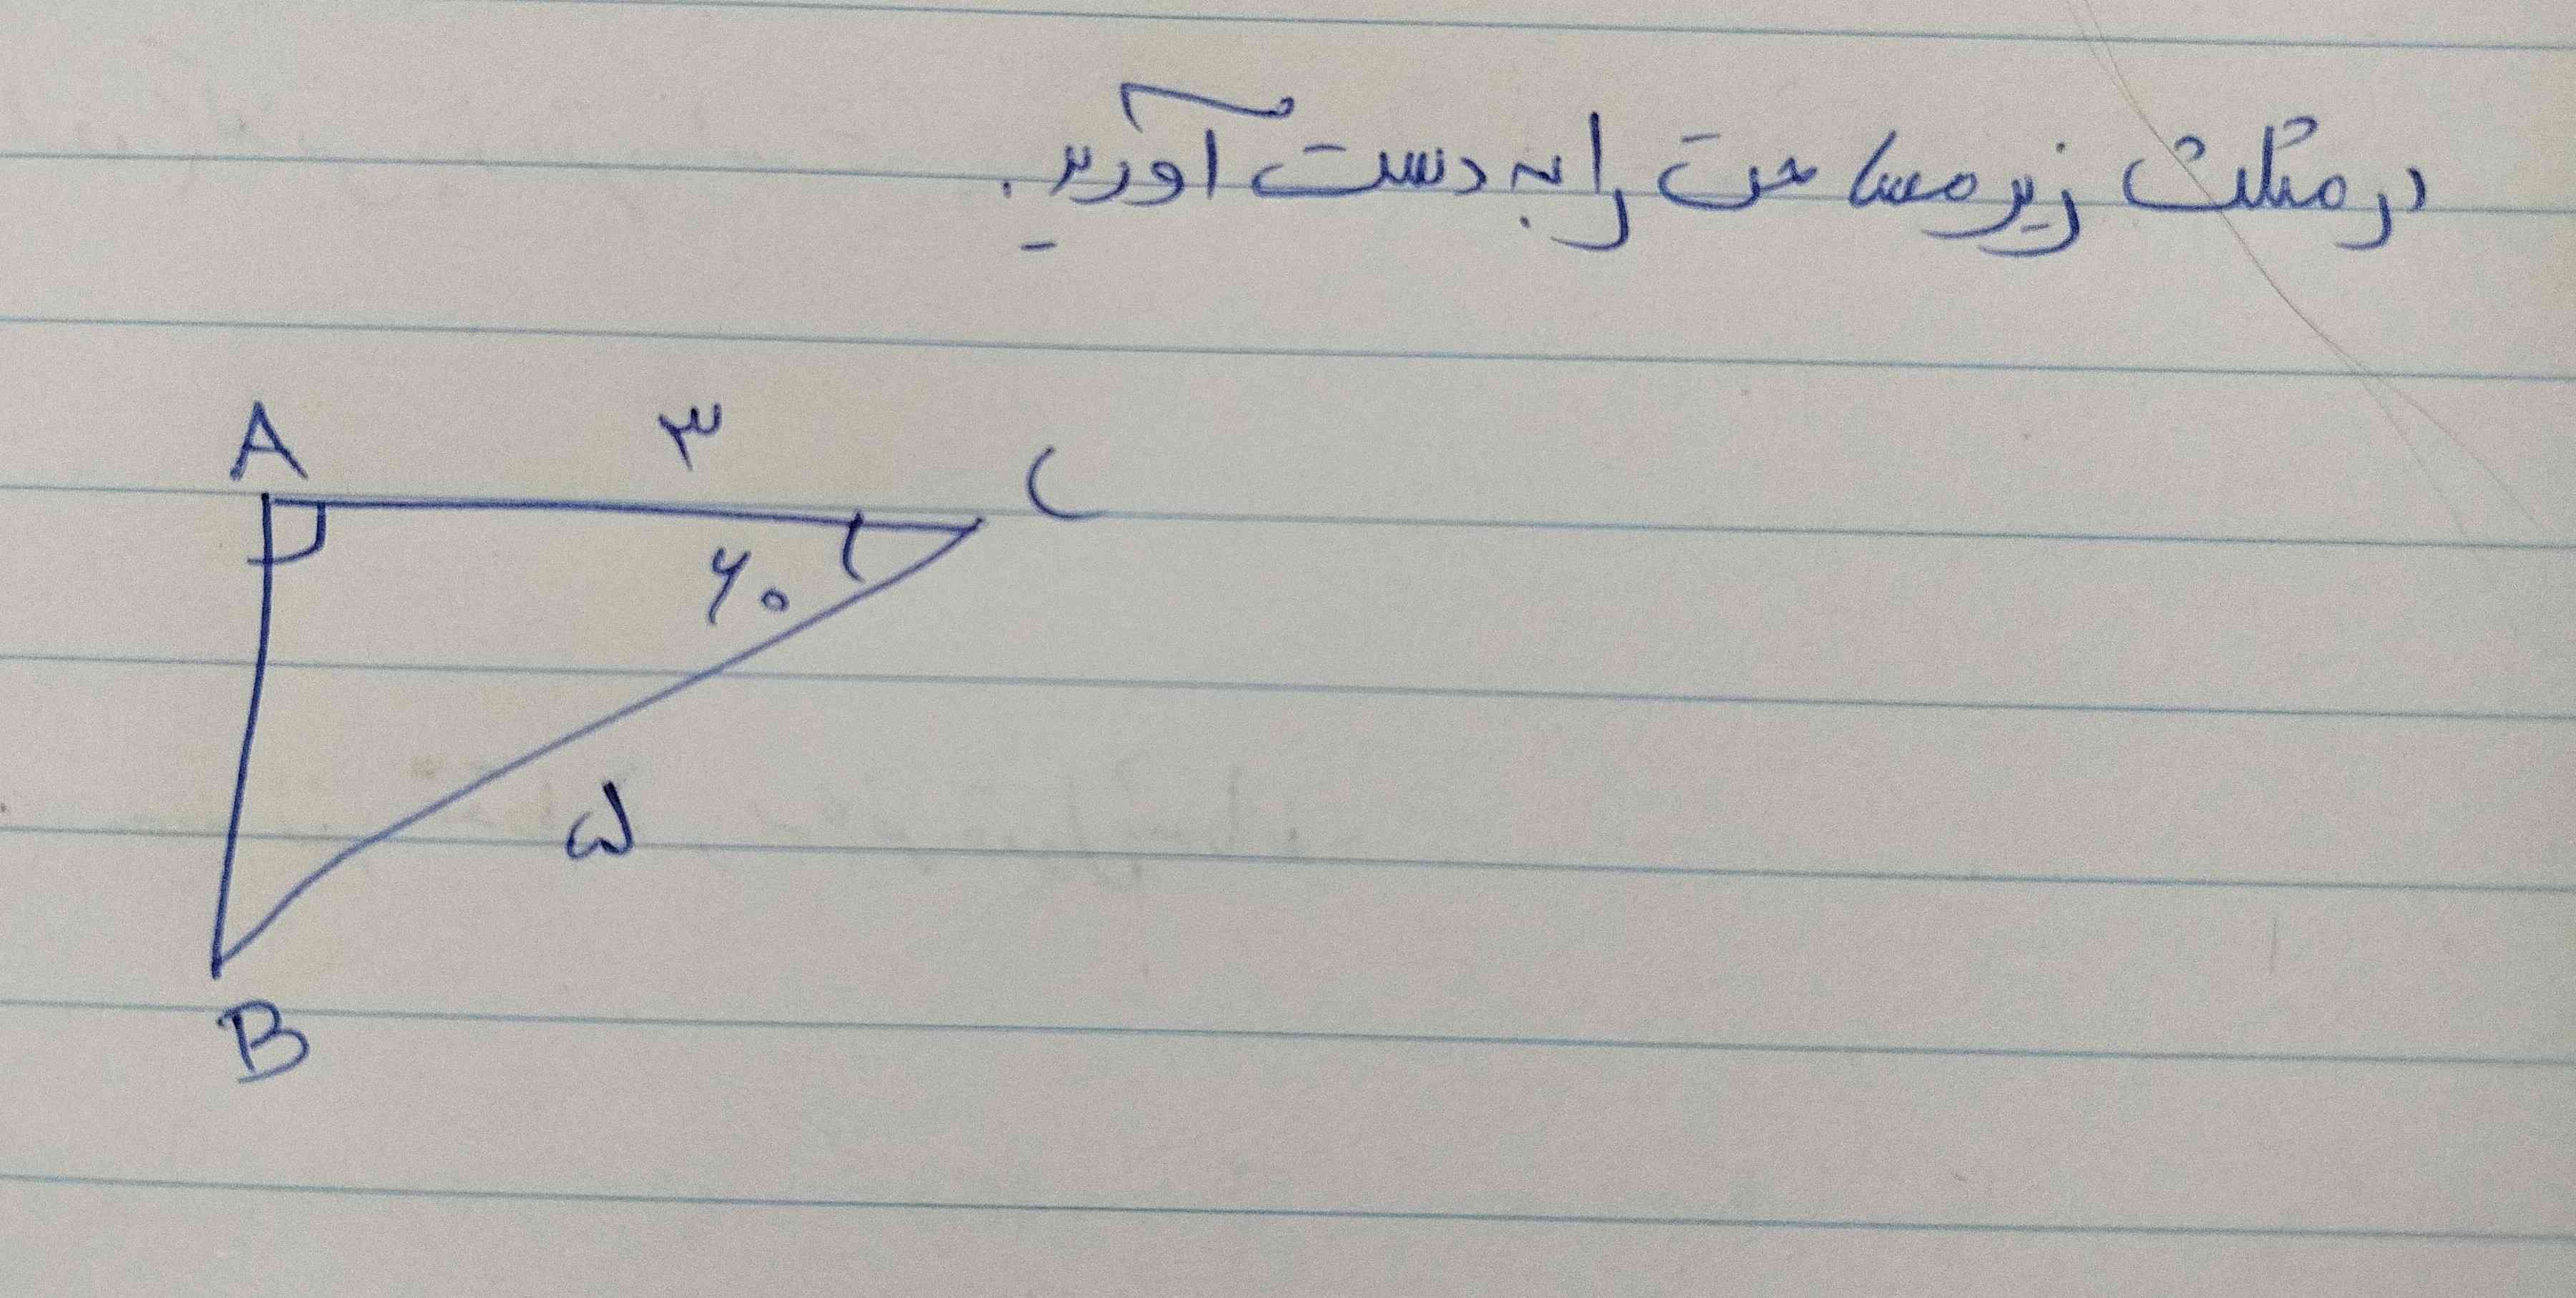 در مثلث زیر مساحت را به دست آورید.
A
۳
C
۶۰
۵
B